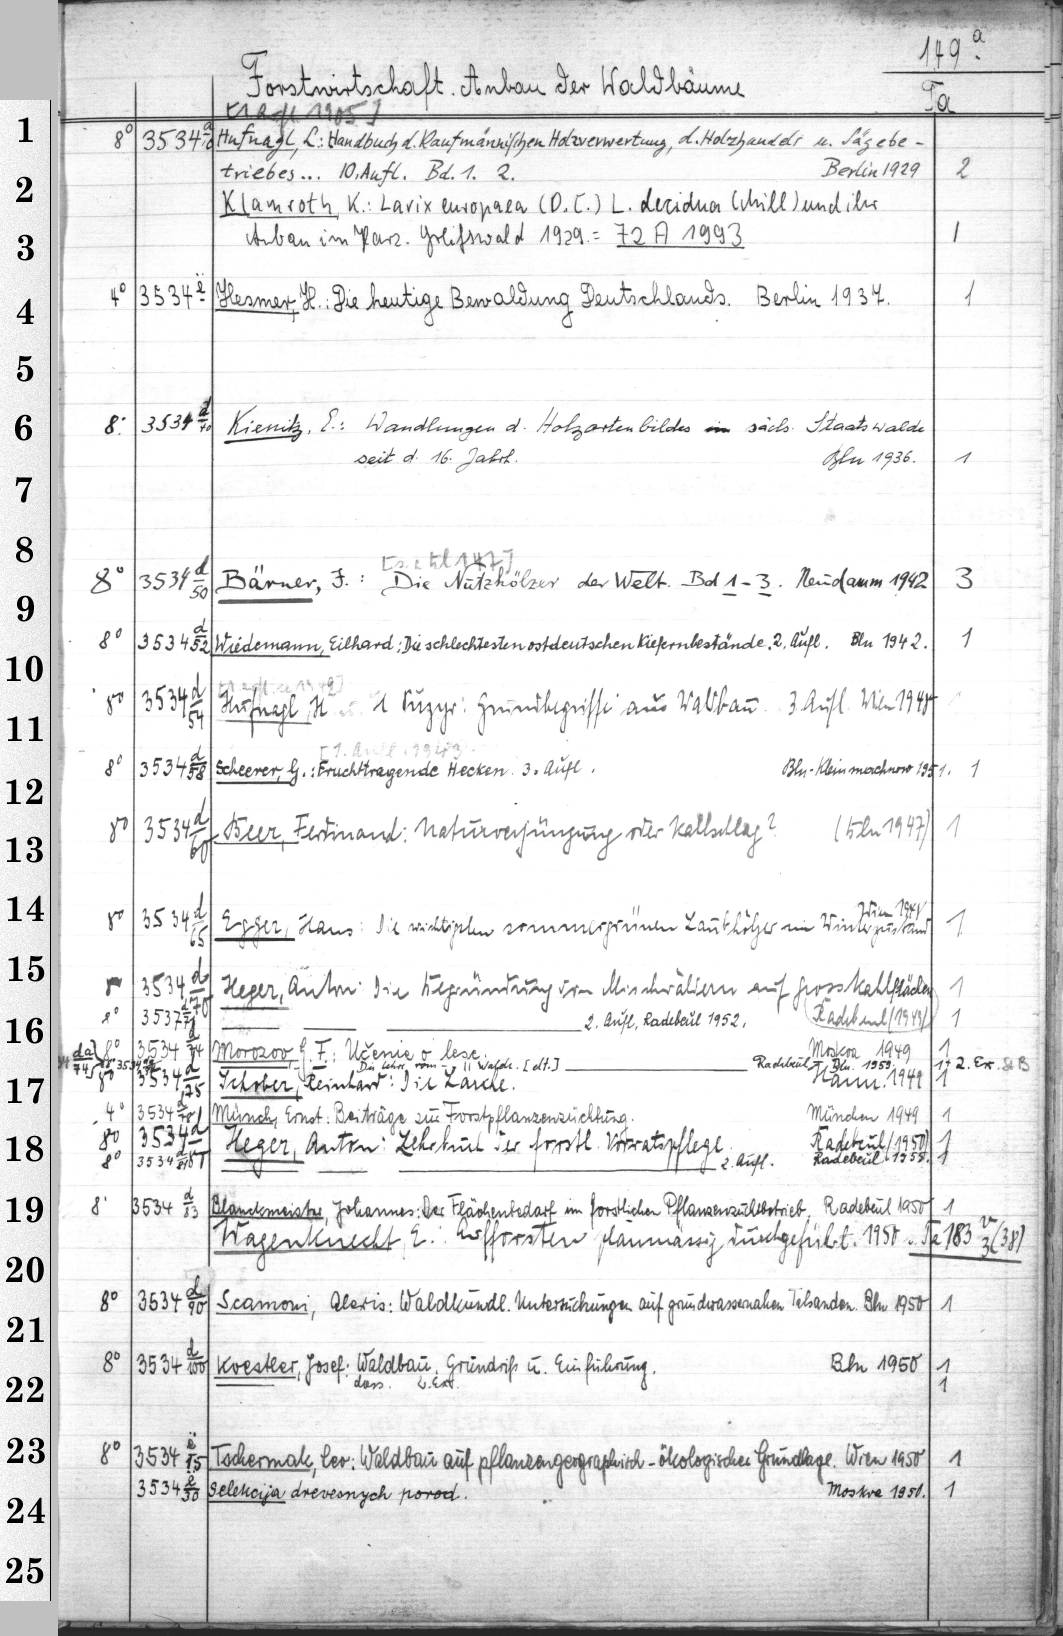 149 a
Forstwirtschaft. Anbau der Waldbäume
Ta
1
8° 3534 Hufnagl, L.: Handbuch d. Kaufmännischen Holzverwertung, d. Holzhandels u. Sägebe-
triebes... 10. Aufl. Bd. 1. 2. Berlin 1929 2
2
Klamroth, K.: Larix europaea (D.C.) L. decidua (Mill) und ihr
3
Anbau im Harz. Greifswald 1929. = 72 A 1993 1
4° 3534 e Hesmer, H.: Die heutige Bewaldung Deutschlands. Berlin 1937. 1
4
5
6
8° 3534 d/40 Kienitz, E.: Wandlungen d. Holzartenbildes im sächs. Staatswalde
seit d. 16. Jahrh. Bln 1936. 1
7
8
8° 3534 d/50 Bärner, J.: Die Nutzhölzer der Welt. Bd 1-3. Neudamm 1942 3
9
8° 3534 d/52 Wiedemann, Eilhard: Die schlechtesten ostdeutschen Kiefernbestände. 2. Aufl. Bln 1942. 1
10
8° 3534 d/54 Hufnagl, H. Grundbegriffe aus Waldbau. 3. Aufl. Wien 1948
11
[1. Aufl. 1943]
8° 3534 d/58 Scheerer, G.: Fruchttragende Hecken. 3. Aufl. Bln-Kleinmachnow 1951. 1
12
8° 3534 d/60 Beer, Ferdinand: Naturverjüngung oder Kahlschlag? (Bln 1947) 1
13
14
Wien 1948
8° 3534 d/65 Egger, Hans: Die wichtigsten sommergrünen Laubhölzer im Winterzustand 1
15
8° 3534 d/70 Heger, Anton: Die Begründung von Mischwäldern auf Grosskahlflächen 1
8° 3537 d/71 2. Aufl, Radebeul 1952. (Radebeul (1949) 1
16
8° 3534 d/74 Morozov, G. F.: Učenie o lese. Moskva 1949 1
Die Lehre vom Walde. [dt.] Radebeul, Bln. 1959 1 2. Ex.
8° 3534 d/75 Schober, Reinhard: Die Lärche. Hann. 1949 1
17
4° 3534 Münch, Ernst: Beiträge zur Forstpflanzenzüchtung. München 1949 1
18
8° 3534 d Heger, Anton: Lehrbuch der forstl. Vorratspflege. Radebeul (1950) 1
8° 3534 2. Aufl. Radebeul 1955. 1
19
8° 3534 d/83 Blanckmeister, Johannes: Der Flächenbedarf im forstlichen Pflanzenzuchtbetrieb. Radebeul 1950 1
Wagenknecht, E.: Aufforsten planmässig durchgeführt. 1950. Ta 183 v/3 (38)
20
8° 3534 d/90 Scamoni, Alexis: Waldkundl. Untersuchungen auf grundwassernahen Talsanden. Bln 1950 1
21
8° 3534 d/100 Koestler, Josef: Waldbau. Grundriß u. Einführung. Bln 1950 1
22
dass. 2. Ex. 1
23
8° 3534 e/15 Tschermak, Leo: Waldbau auf pflanzengeographisch-ökologischer Grundlage. Wien 1950 1
3534 e/30 Selekcija drevesnych porod. Moskva 1951. 1
24
25